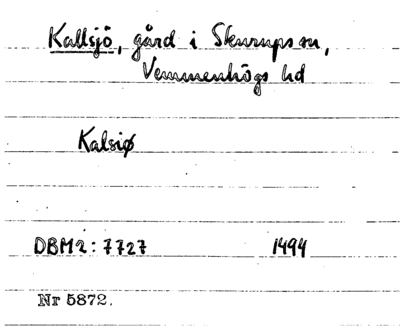 Kallsjö, gård i Skurups sn,
Vemmenhögs hd
Kalsiø
DBM2: 7727 1494
Nr 5872.